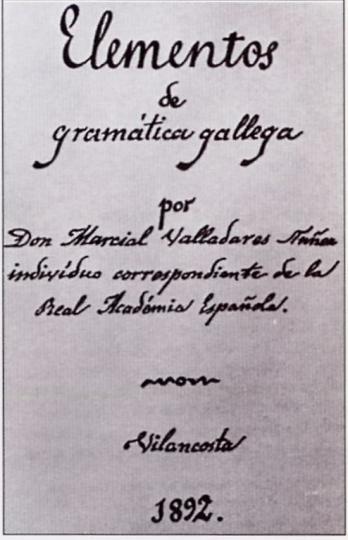 Elementos
de
gramática gallega
por
Don Marcial Valladares Núñez
indivíduo correspondiente de la
Real Académia Española.
Vilancosta
1892.